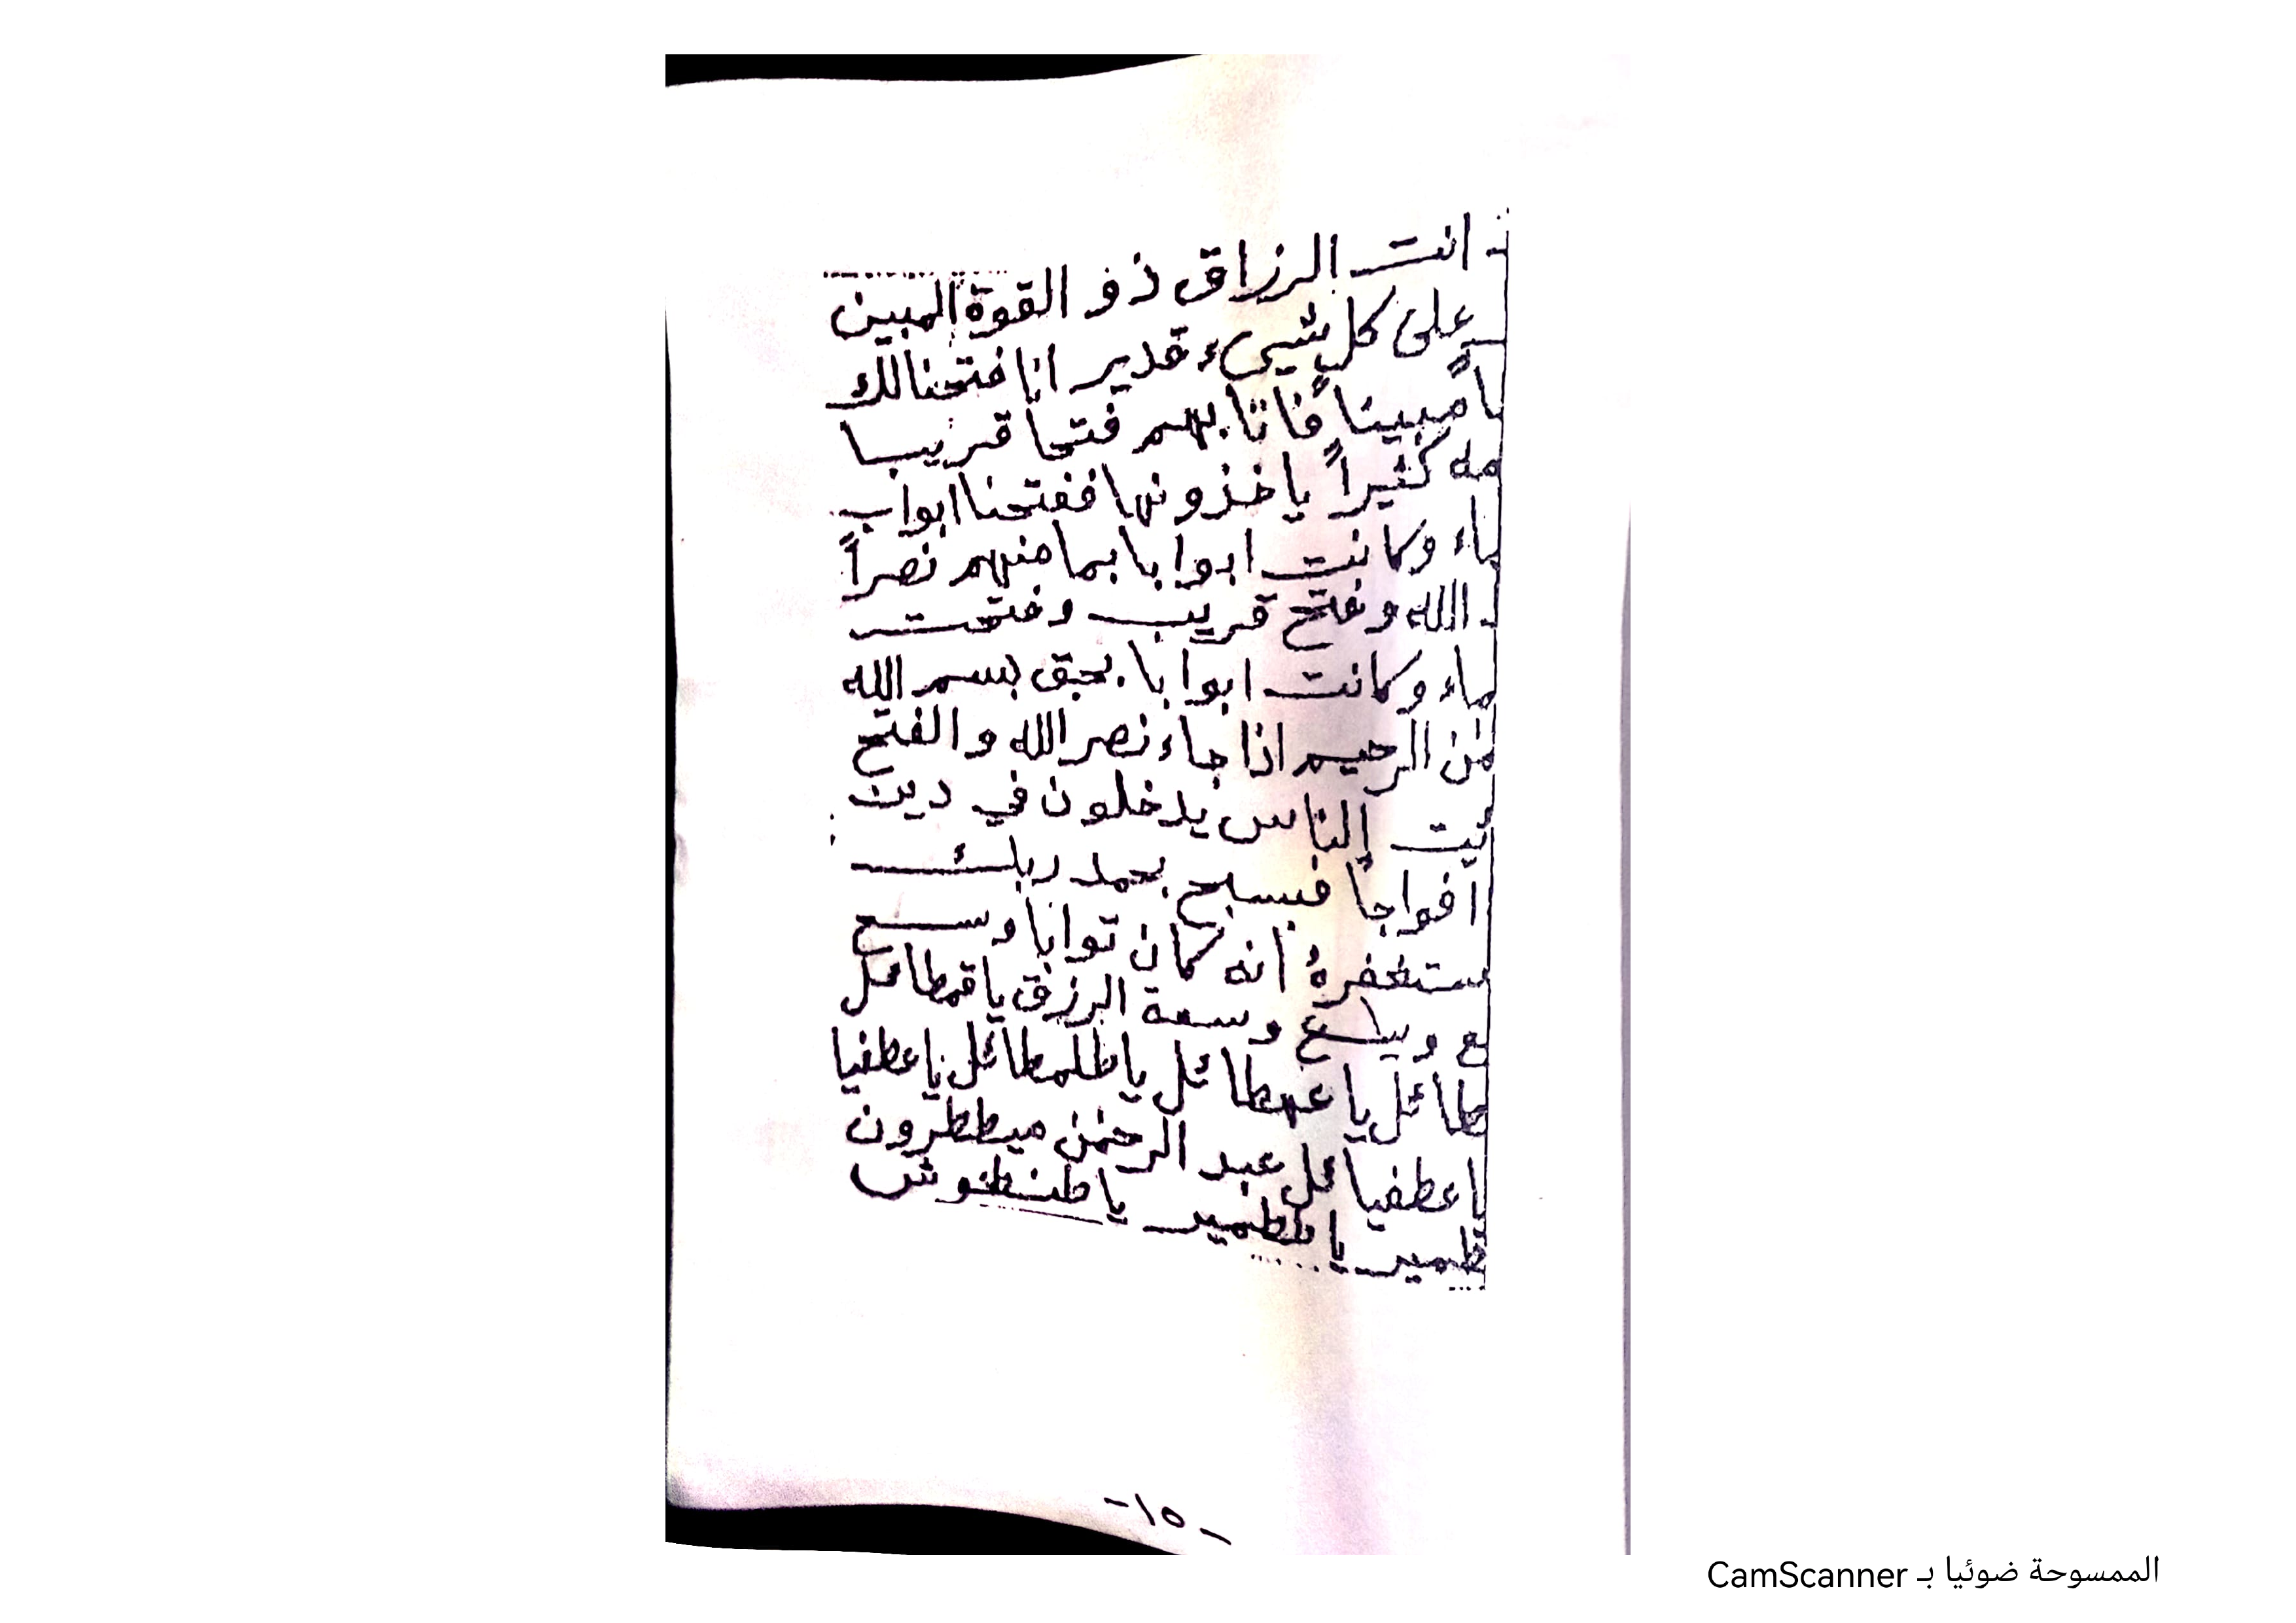 انت الرزاق ذو القوة المبين
على كل شيىء قدير انا فتحنا لك
مبيناً فاثابهم فتحا قريبا
كثيراً ياخذونها ففتحنا ابواب
وكانت ابوابا بما منهم نصراً
الله وفتح قريب وفتحت
وكانت ابوابا بحق بسم الله
الرحيم اذا جاء نصر الله والفتح
الناس يدخلون في دين
افواجاً فسبح بحمد ربك
ستغفره انه كان توابا وسع
وسعة الرزق يا قمطائل
طائل يا عهطائل يا طلمطائل يا عطفيا
عطفيائل عبد الرحمٰن ميططرون
يا ططمير يا طنطنوش
-١٥-
الممسوحة ضوئيا بـ CamScanner